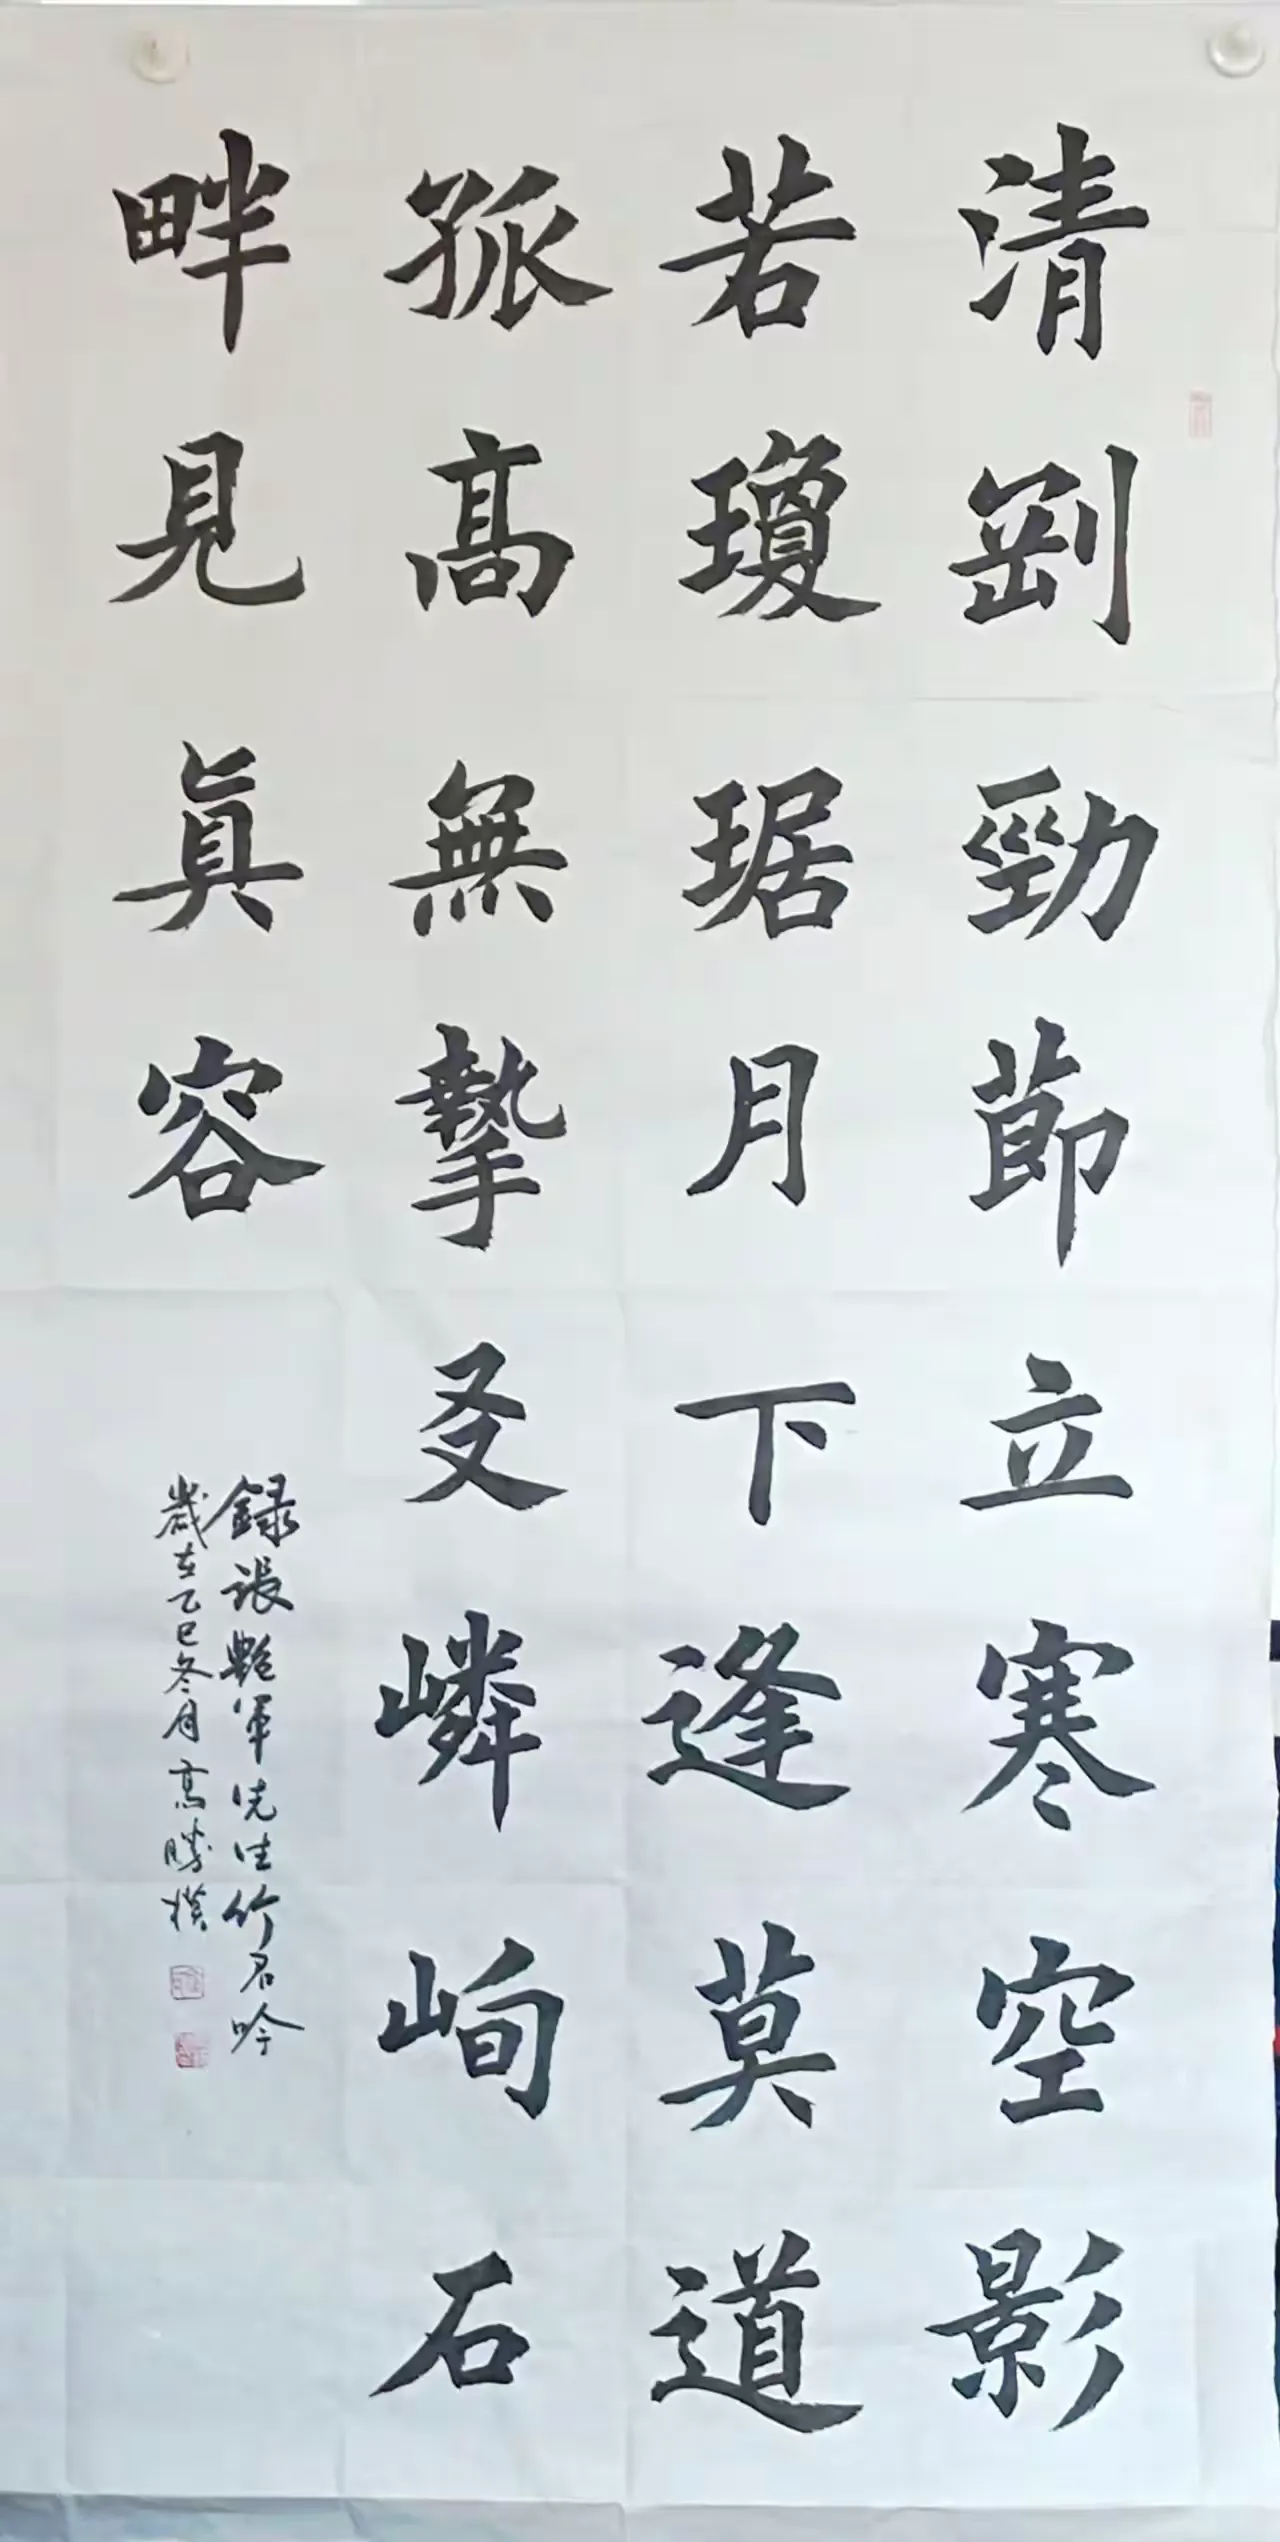 清剛勁莭立寒空影
若瓊琚月下逢莫道
孤髙無摯友嶙峋石
畔見眞容
録張艷軍先生竹君吟
歲在乙巳冬月高勝樸